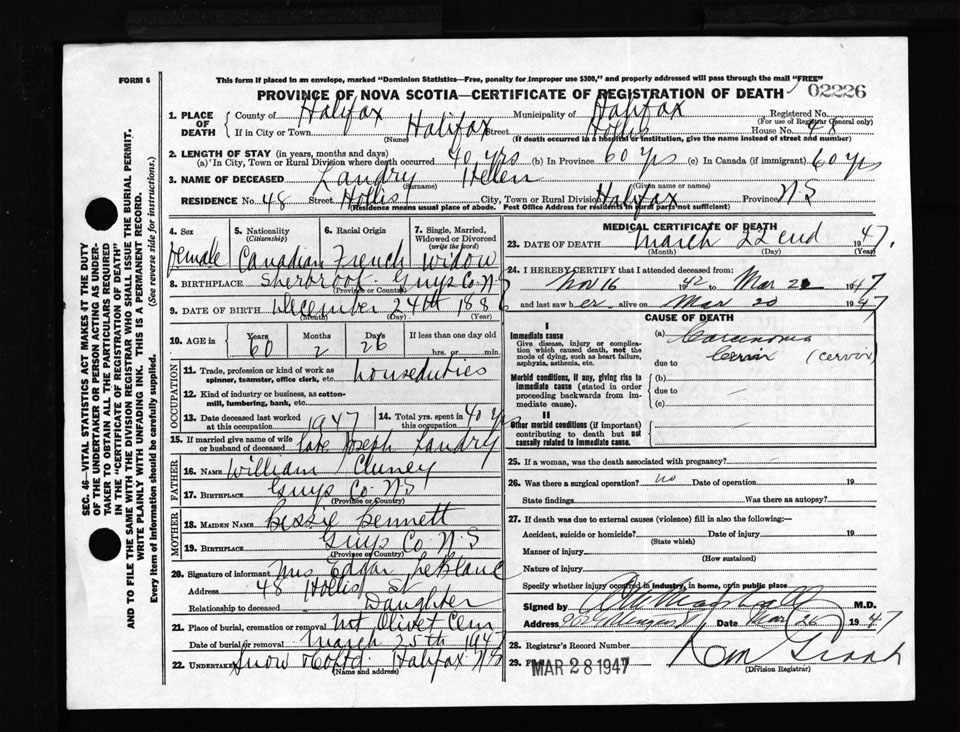 FORM 6
This form if placed in an envelope, marked "Dominion Statistics—Free, penalty for improper use $300," and properly addressed will pass through the mail "FREE"
PROVINCE OF NOVA SCOTIA—CERTIFICATE OF REGISTRATION OF DEATH 02226
1. PLACE OF DEATH County of Halifax Municipality of Halifax Registered No.
(For use of Registrar General only)
If in City or Town Halifax Street Hollis House No. 48
(Name) (If death occurred in a hospital or institution, give the name instead of street and number)
2. LENGTH OF STAY (in years, months and days)
(a) In City, Town or Rural Division where death occurred 40 yrs (b) In Province 60 yrs (c) In Canada (if immigrant) 60 yrs
3. NAME OF DECEASED Landry Helen
(Surname) (Given name or names)
RESIDENCE No. 48 Street Hollis City, Town or Rural Division Halifax Province N.S
(Residence means usual place of abode. Post Office Address for residents in rural parts not sufficient)
4. Sex 5. Nationality (Citizenship) 6. Racial Origin 7. Single, Married, Widowed or Divorced (write the word)
female Canadian French Widow
8. BIRTHPLACE Sherbrook Guys Co. N.S
(Province or Country)
9. DATE OF BIRTH December 24th 1886
(Month) (Day) (Year)
10. AGE in Years Months Days If less than one day old
60 2 26 hrs. or min.
OCCUPATION
11. Trade, profession or kind of work as spinner, teamster, office clerk, etc. houseduties
12. Kind of industry or business, as cotton-mill, lumbering, bank, etc.
13. Date deceased last worked at this occupation 1947 14. Total yrs. spent in 40 yrs
15. If married give name of wife or husband of deceased late Joseph Landry
FATHER
16. NAME William Cluney
17. BIRTHPLACE Guys Co. N.S
(Province or Country)
MOTHER
18. MAIDEN NAME Lizzie Bennett
19. BIRTHPLACE Guys Co N.S
(Province or Country)
20. Signature of informant Mrs Edgar LeBlanc
Address 48 Hollis St
Relationship to deceased Daughter
21. Place of burial, cremation or removal Mt Olivet Cem
Date of burial or removal March 25th 1947
22. Undertaker Snow & Co Ltd. Halifax N.S
(Name and address)
MEDICAL CERTIFICATE OF DEATH
23. DATE OF DEATH March 22end 1947.
(Month) (Day) (Year)
24. I HEREBY CERTIFY that I attended deceased from:
Nov 16 1942 to Mar 1947
and last saw her alive on Mar 20 1947
CAUSE OF DEATH
I
Immediate cause
Give disease, injury or complication which caused death, not the mode of dying, such as heart failure, asphyxia, asthenia, etc.
(a) Carcinoma
due to Cervix (cervix)
Morbid conditions, if any, giving rise to immediate cause (stated in order proceeding backwards from immediate cause).
(b)
due to
(c)
II
Other morbid conditions (if important) contributing to death but not causally related to immediate cause.
25. If a woman, was the death associated with pregnancy?
26. Was there a surgical operation? no Date of operation 19
State findings Was there an autopsy?
27. If death was due to external causes (violence) fill in also the following:—
Accident, suicide or homicide? Date of injury 19
(State which)
Manner of injury
(How sustained)
Nature of injury
Specify whether injury occurred in industry, in home, or in public place
Signed by M.D.
Address Date Mar 26 1947
28. Registrar's Record Number
29. Filed MAR 28 1947
(Division Registrar)
SEC. 46—VITAL STATISTICS ACT MAKES IT THE DUTY
OF THE UNDERTAKER OR PERSON ACTING AS UNDER-
TAKER TO OBTAIN ALL THE PARTICULARS REQUIRED
IN THE "CERTIFICATE OF REGISTRATION OF DEATH"
AND TO FILE THE SAME WITH THE DIVISION REGISTRAR WHO SHALL ISSUE THE BURIAL PERMIT.
WRITE PLAINLY WITH UNFADING INK. THIS IS A PERMANENT RECORD.
Every item of information should be carefully supplied. (See reverse side for instructions.)